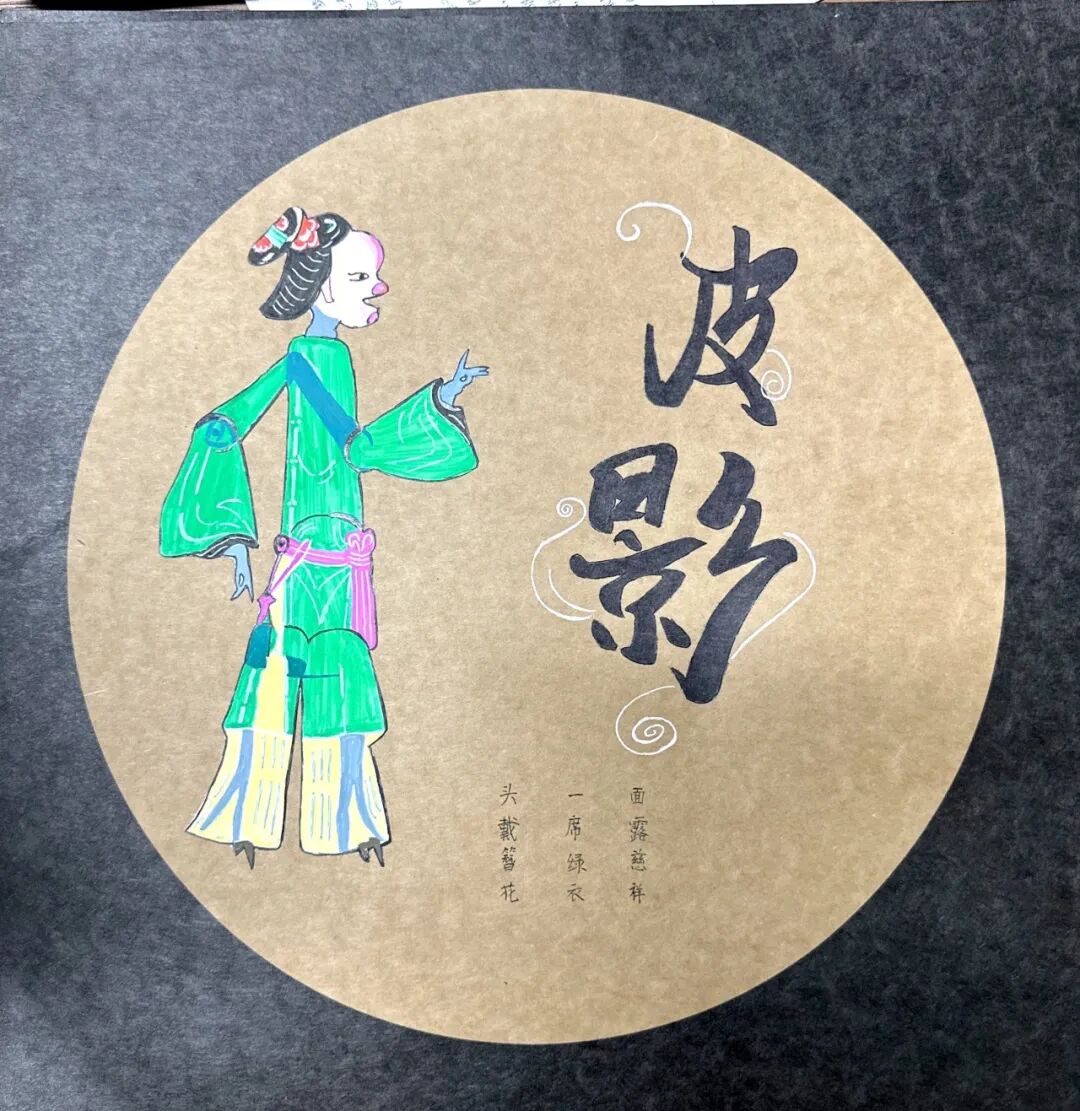 皮影
面露慈祥
一席绿衣
头戴簪花